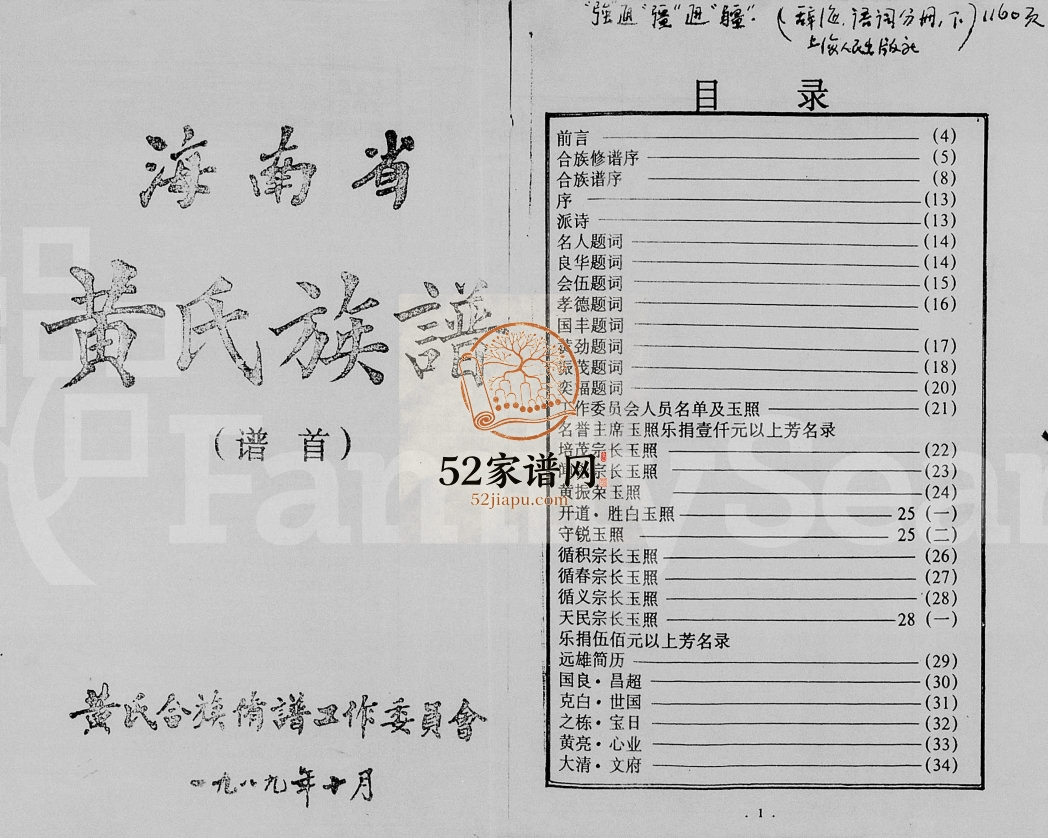 海南省
黄氏族譜
（谱首）
黄氏合族修譜工作委員會
一九八九年十月
"强"通"彊"通"疆"．（辞海．语词分册，下．）1160页
上海人民出版社
目 录
前言 (4)
合族修谱序 (5)
合族谱序 (8)
序 (13)
派诗 (13)
名人题词 (14)
良华题词 (14)
会伍题词 (15)
孝德题词 (16)
国丰题词
劲题词 (17)
振茂题词 (18)
奕福题词 (20)
工作委员会人员名单及玉照 (21)
名誉主席玉照乐捐壹仟元以上芳名录
培茂宗长玉照 (22)
宗长玉照 (23)
黄振荣玉照 (24)
开道·胜白玉照 25 (一)
守锐玉照 25 (二)
循积宗长玉照 (26)
循春宗长玉照 (27)
循义宗长玉照 (28)
天民宗长玉照 28 (一)
乐捐伍佰元以上芳名录
远雄简历 (29)
国良·昌超 (30)
克白·世国 (31)
之栋·宝日 (32)
黄亮·心业 (33)
大清·文府 (34)
. 1 .
52家谱网
52jiapu.com
FamilySear